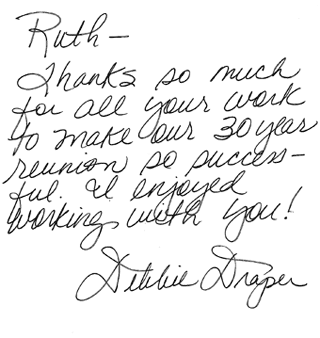 Ruth-
Thanks so much
for all your work
to make our 30 year
reunion so success-
ful. I enjoyed
working with you!
Debbie Draper